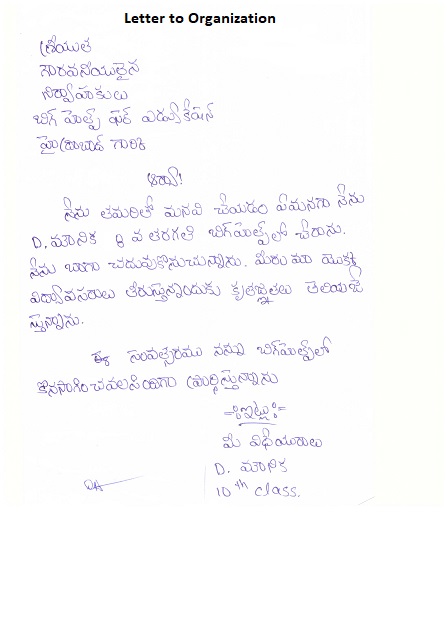 Letter to Organization
శ్రీయుత
గౌరవనీయులైన
నిర్వాహకులు
బిగ్ హెల్ప్ ఫర్ ఎడ్యుకేషన్
హైద్రాబాద్ గారికి
ఆర్యా!
నేను తమరితో మనవి చేయడం ఏమనగా నేను
D. మౌనిక 8 వ తరగతి బిగ్‌హెల్ప్‌లో చేరాను.
నేను బాగా చదువుకొనుచున్నాను. మీరు మా యొక్క
విద్యావసరాలు తీరుస్తున్నందుకు కృతజ్ఞతలు తెలియజే
స్తున్నాను.
ఈ సంవత్సరము నన్ను బిగ్‌హెల్ప్‌లో
కొనసాగించవలసిందిగా ప్రార్థిస్తున్నాను
=:ఇట్లు:=
మీ విధేయురాలు
D. మౌనిక
10th class.